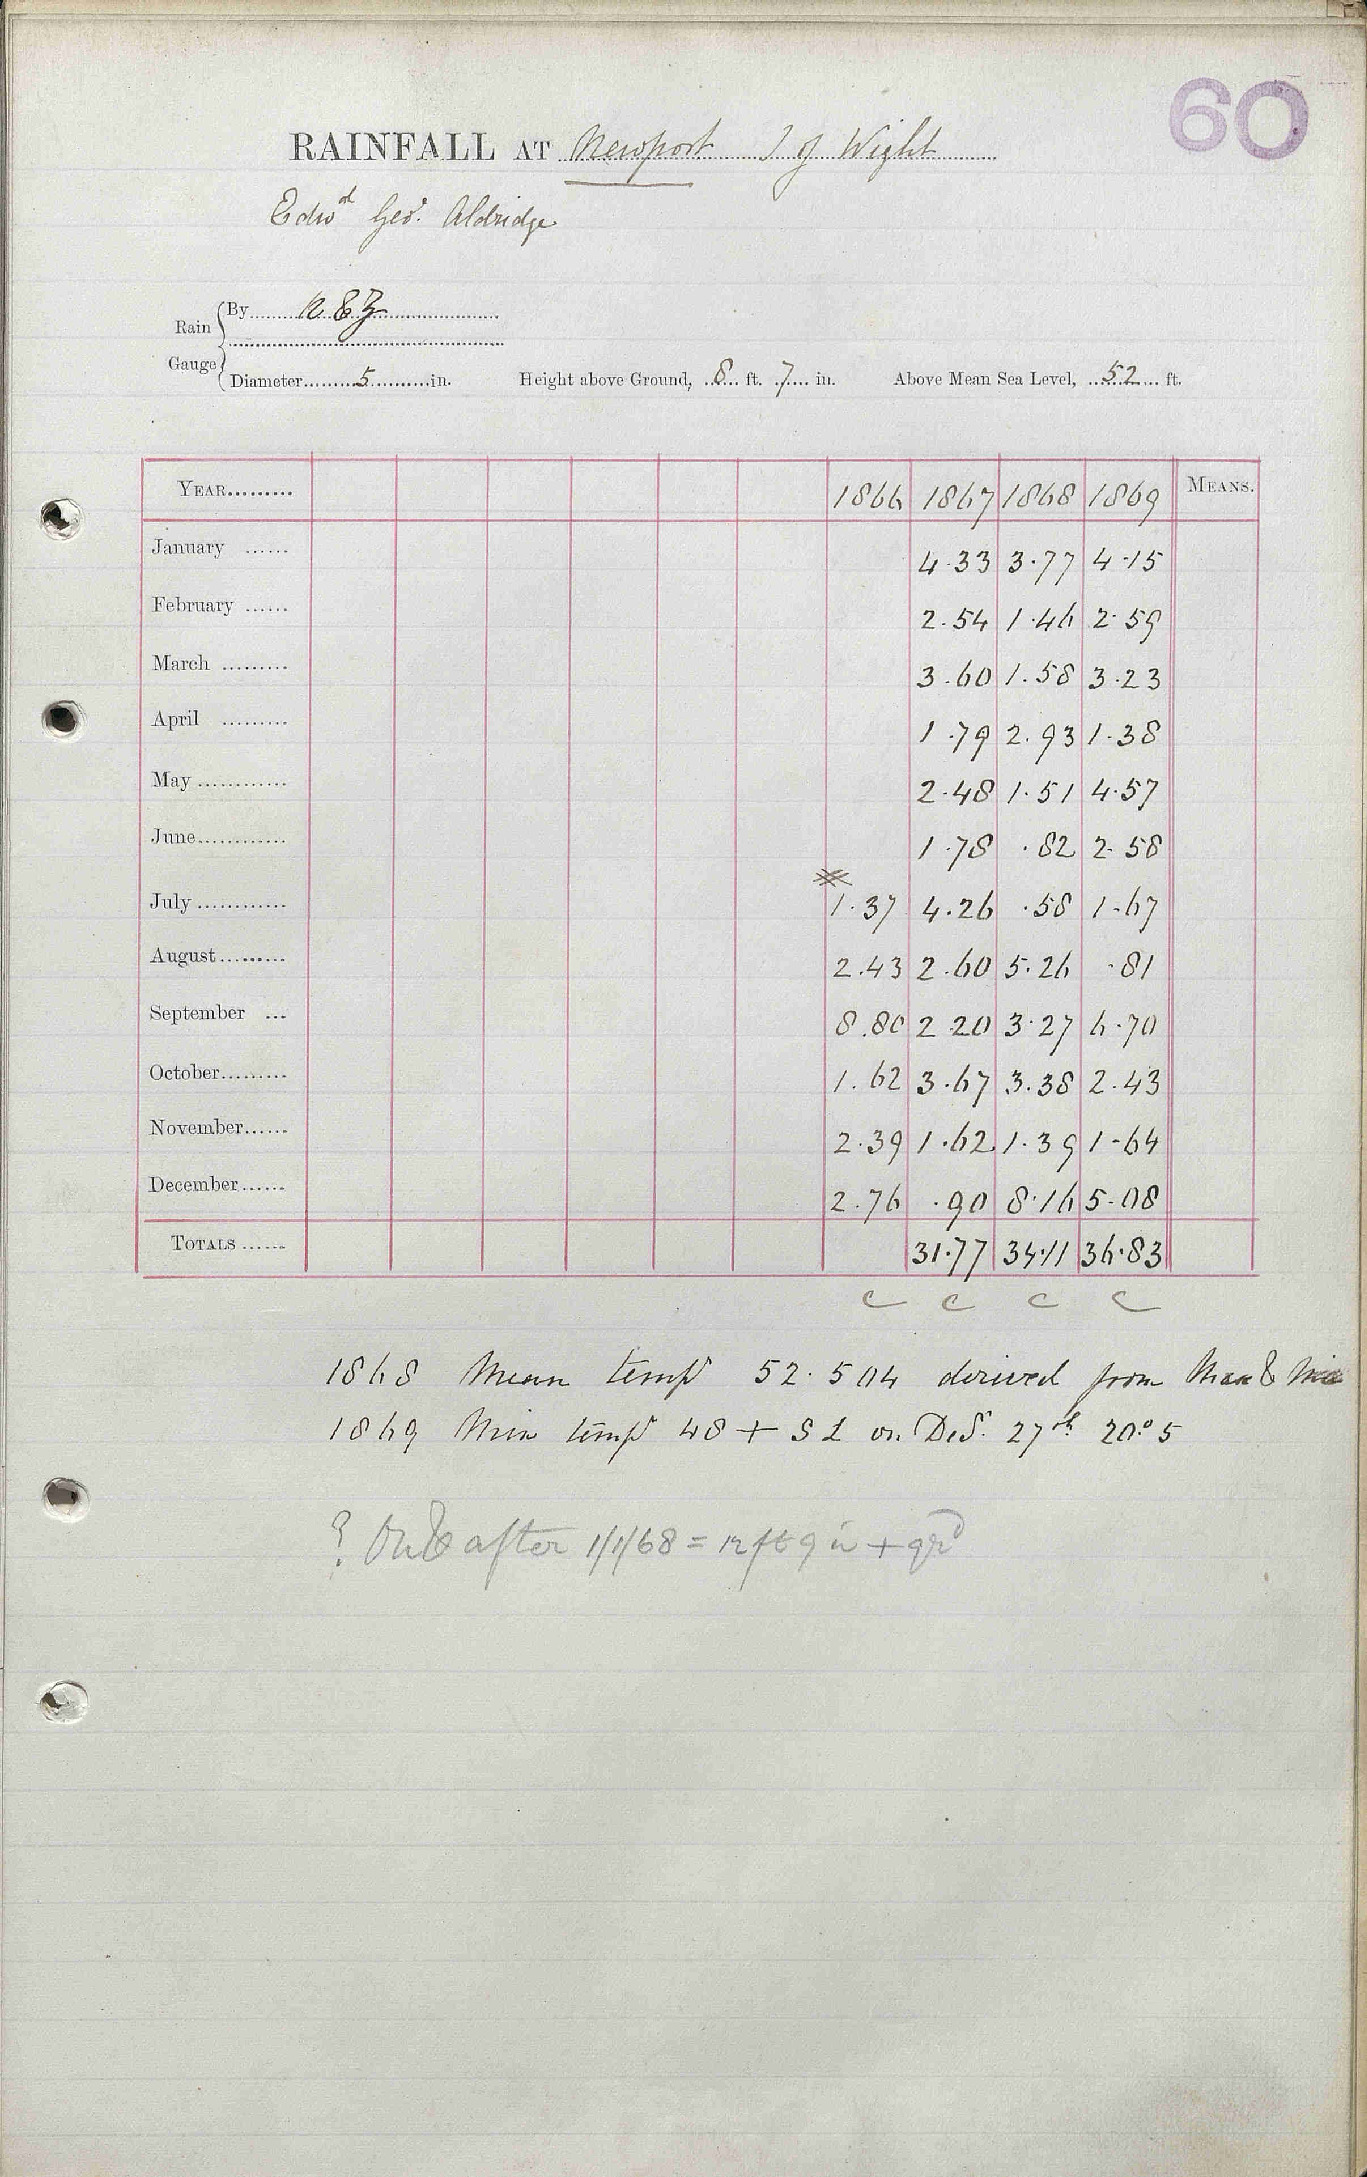 60
RAINFALL AT Newport I of Wight
Edwd Geo. Aldridge
Rain Gauge
By N & Z
Diameter 5 in. Height above Ground, 8 ft. 7 in. Above Mean Sea Level, 52 ft.
YEAR 1866 1867 1868 1869 MEANS.
January 4.33 3.77 4.15
February 2.54 1.46 2.59
March 3.60 1.58 3.23
April 1.79 2.93 1.38
May 2.48 1.51 4.57
June 1.78 .82 2.58
July 1.37 4.26 .58 1.67
August 2.43 2.60 5.26 .81
September 8.80 2.20 3.27 6.70
October 1.62 3.67 3.38 2.43
November 2.39 1.62 1.39 1.64
December 2.76 .90 8.16 5.08
TOTALS 31.77 34.11 36.83
C C C C
1868 Mean temp 52.504 derived from Max & Min
1869 Min temp 48 + on Dec. 27th 20.°5
? On & after 1/1/68 = 12 ft 9 in + grd